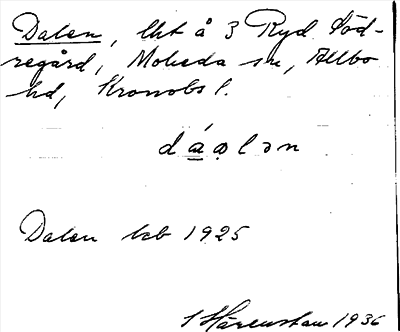 Dalen, lht å 3 Ryd Söd-
regård, Moheda sn, Allbo
hd, Kronobs l.
dá̲ạlən
Dalen beb 1925
1936